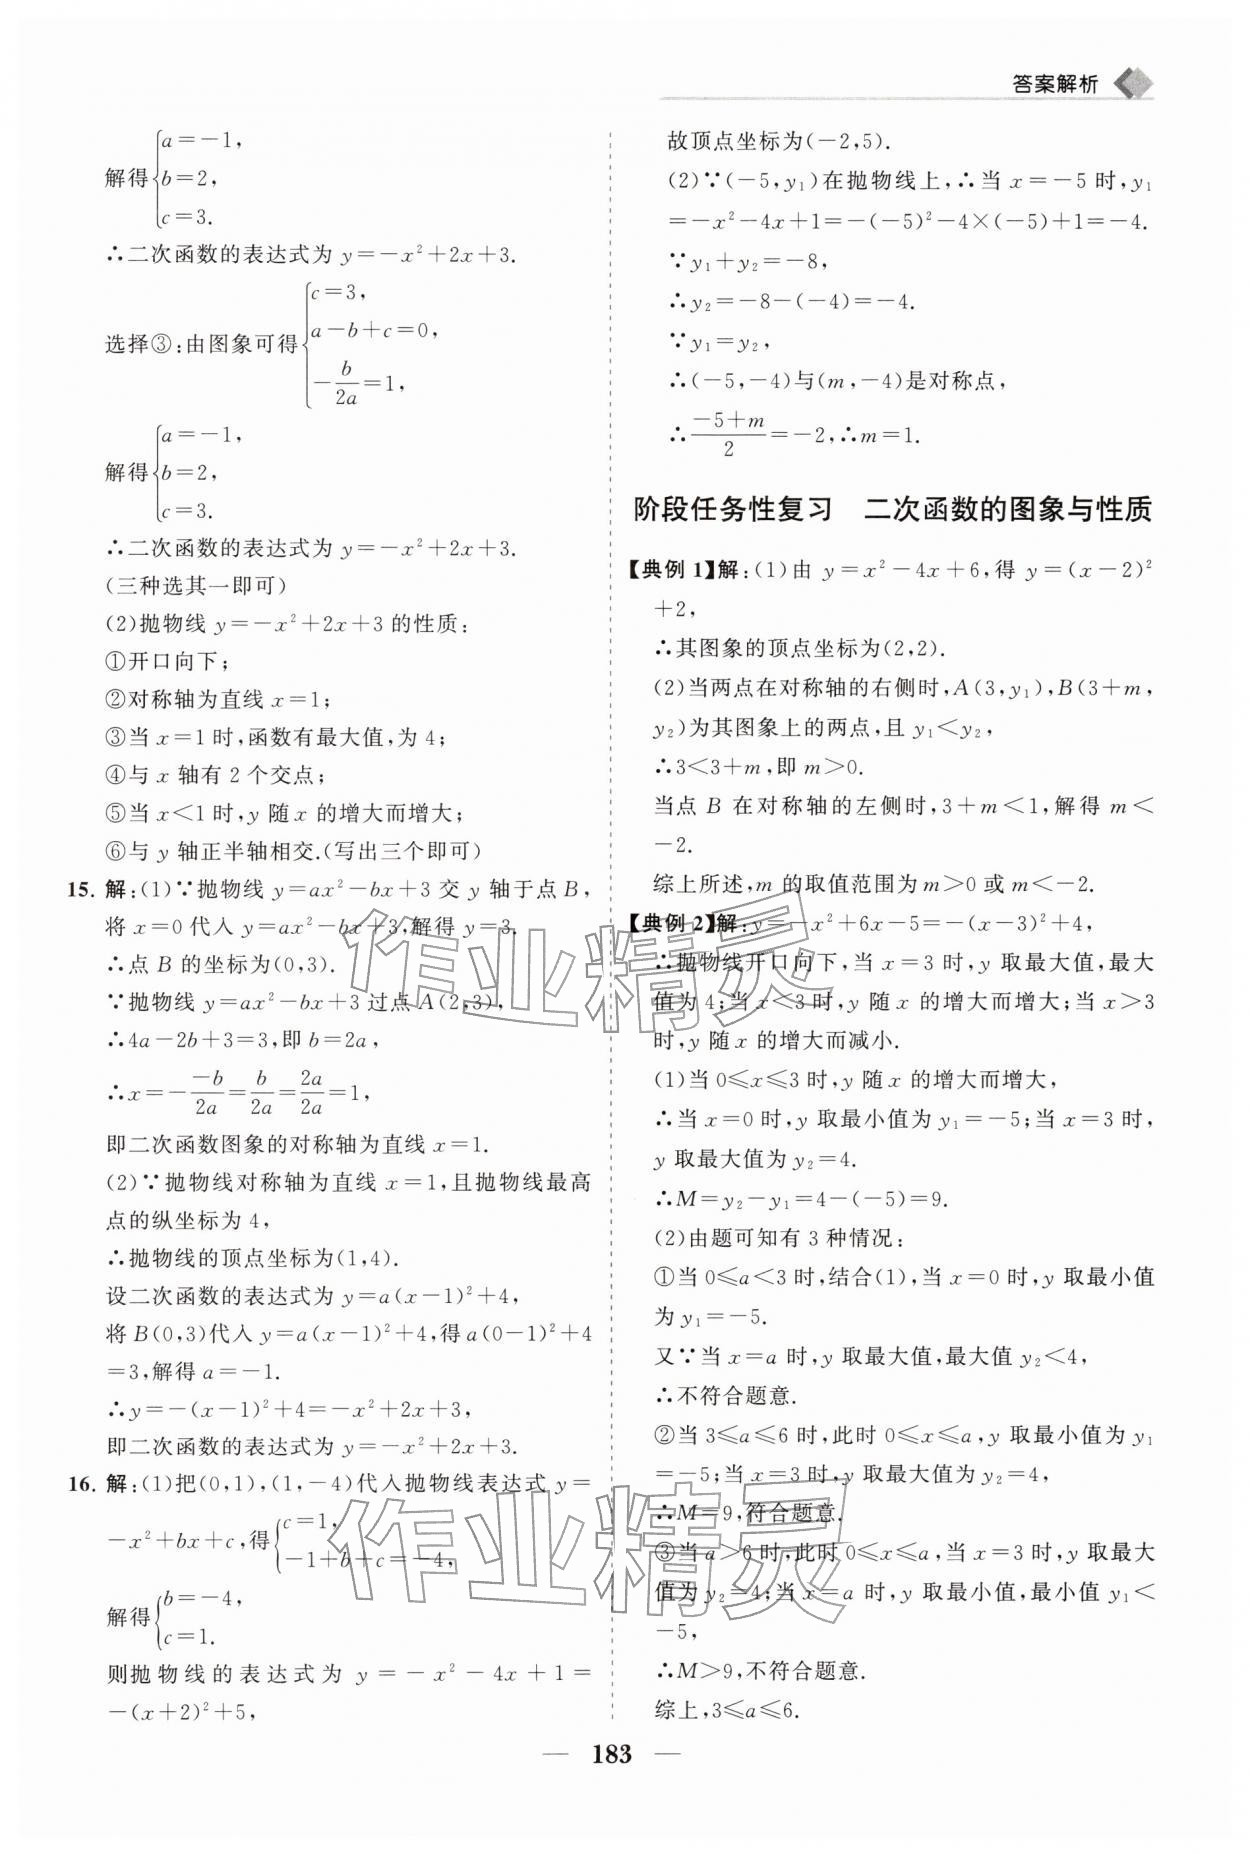 答案解析
解得{a=-1,
b=2,
c=3.
∴二次函数的表达式为 y=-x²+2x+3.
选择③:由图象可得{c=3,
a-b+c=0,
-b/2a=1,
解得{a=-1,
b=2,
c=3.
∴二次函数的表达式为 y=-x²+2x+3.
(三种选其一即可)
(2)抛物线 y=-x²+2x+3 的性质:
①开口向下;
②对称轴为直线 x=1;
③当 x=1 时,函数有最大值,为 4;
④与 x 轴有 2 个交点;
⑤当 x<1 时,y 随 x 的增大而增大;
⑥与 y 轴正半轴相交.(写出三个即可)
15. 解:(1)∵抛物线 y=ax²-bx+3 交 y 轴于点 B,
将 x=0 代入 y=ax²-bx+3,解得 y=3.
∴点 B 的坐标为(0,3).
∵抛物线 y=ax²-bx+3 过点 A(2,3),
∴4a-2b+3=3,即 b=2a,
∴x=--b/2a=b/2a=2a/2a=1,
即二次函数图象的对称轴为直线 x=1.
(2)∵抛物线对称轴为直线 x=1,且抛物线最高
点的纵坐标为 4,
∴抛物线的顶点坐标为(1,4).
设二次函数的表达式为 y=a(x-1)²+4,
将 B(0,3)代入 y=a(x-1)²+4,得 a(0-1)²+4
=3,解得 a=-1.
∴y=-(x-1)²+4=-x²+2x+3,
即二次函数的表达式为 y=-x²+2x+3.
16. 解:(1)把(0,1),(1,-4)代入抛物线表达式 y=
-x²+bx+c,得{c=1,
-1+b+c=-4,
解得{b=-4,
c=1.
则抛物线的表达式为 y=-x²-4x+1=
-(x+2)²+5,
故顶点坐标为(-2,5).
(2)∵(-5,y₁)在抛物线上,∴当 x=-5 时,y₁
=-x²-4x+1=-(-5)²-4×(-5)+1=-4.
∵y₁+y₂=-8,
∴y₂=-8-(-4)=-4.
∵y₁=y₂,
∴(-5,-4)与(m,-4)是对称点,
∴-5+m/2=-2,∴m=1.
阶段任务性复习 二次函数的图象与性质
【典例 1】解:(1)由 y=x²-4x+6,得 y=(x-2)²
+2,
∴其图象的顶点坐标为(2,2).
(2)当两点在对称轴的右侧时,A(3,y₁),B(3+m,
y₂)为其图象上的两点,且 y₁<y₂,
∴3<3+m,即 m>0.
当点 B 在对称轴的左侧时,3+m<1,解得 m<
-2.
综上所述,m 的取值范围为 m>0 或 m<-2.
【典例 2】解:y=-x²+6x-5=-(x-3)²+4,
∴抛物线开口向下,当 x=3 时,y 取最大值,最大
值为 4;当 x<3 时,y 随 x 的增大而增大;当 x>3
时,y 随 x 的增大而减小.
(1)当 0≤x≤3 时,y 随 x 的增大而增大,
∴当 x=0 时,y 取最小值为 y₁=-5;当 x=3 时,
y 取最大值为 y₂=4.
∴M=y₂-y₁=4-(-5)=9.
(2)由题可知有 3 种情况:
①当 0≤a<3 时,结合(1),当 x=0 时,y 取最小值
为 y₁=-5.
又∵当 x=a 时,y 取最大值,最大值 y₂<4,
∴不符合题意.
②当 3≤a≤6 时,此时 0≤x≤a,y 取最小值为 y₁
=-5;当 x=3 时,y 取最大值为 y₂=4,
∴M=9,符合题意.
③当 a>6 时,此时 0≤x≤a,当 x=3 时,y 取最大
值为 y₂=4;当 x=a 时,y 取最小值,最小值 y₁<
-5,
∴M>9,不符合题意.
综上,3≤a≤6.
作业精灵
作业精灵
— 183 —